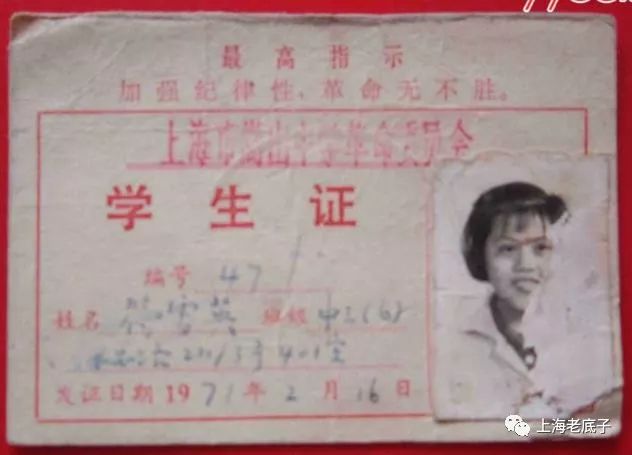 最高指示
加强纪律性，革命无不胜。
上海市嵩山中学革命委员会
学生证
编号 47
姓名 雪英 班级 中三(6)
213号401室
发证日期1971年2月16日
上海老底子